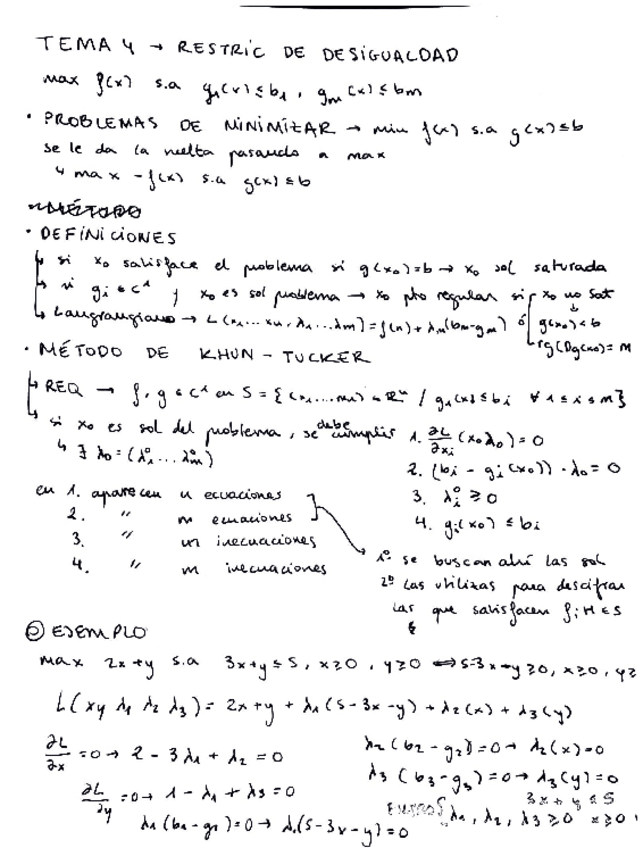 TEMA 4 → RESTRIC DE DESIGUALDAD
max f(x) s.a g₁(x) ≤ b₁, gₘ(x) ≤ bₘ
• PROBLEMAS DE MINIMIZAR → min f(x) s.a g(x) ≤ b
se le da la vuelta pasando a max
↳ max -f(x) s.a g(x) ≤ b
MÉTODO
• DEFINICIONES
↳ si x₀ satisface el problema si g(x₀)=b → x₀ sol saturada
↳ si gᵢ ∈ C¹ y x₀ es sol problema → x₀ pto regular si x₀ no sat
↳ Laungrangiano → L(x₁...xₙ, λ₁...λₘ) = f(x) + λₘ(bₘ-gₘ) ó g(x₀) < b
rg(Dg(x₀)) = m
• MÉTODO DE KHUN - TUCKER
↳ REQ → f, g ∈ C¹ en S = {(x₁...xₙ) ∈ ℝⁿ / gᵢ(x) ≤ bᵢ ∀ 1 ≤ i ≤ m}
↳ si x₀ es sol del problema, se debe cumplir 1. ∂L/∂xᵢ (x₀ λ₀) = 0
↳ ∃ λ₀ = (λ₁⁰ ... λₘ⁰)
2. (bᵢ - gᵢ(x₀)) · λ₀ = 0
en 1. aparecen n ecuaciones
3. λᵢ⁰ ≥ 0
2. " m ecuaciones
4. gᵢ(x₀) ≤ bᵢ
3. " m inecuaciones
4. " m inecuaciones
1º se buscan ahí las sol
2º las utilizas para descifrar
las que satisfacen
EJEMPLO
max 2x+y s.a 3x+y ≤ 5, x ≥ 0, y ≥ 0 ⟺ 5-3x-y ≥ 0, x ≥ 0, y ≥
L(x y λ₁ λ₂ λ₃) = 2x+y + λ₁(5-3x-y) + λ₂(x) + λ₃(y)
∂L/∂x = 0 → 2 - 3λ₁ + λ₂ = 0
λ₂(b₂ - g₂) = 0 → λ₂(x) = 0
∂L/∂y = 0 → 1 - λ₁ + λ₃ = 0
λ₃(b₃ - g₃) = 0 → λ₃(y) = 0
3x + y ≤ 5
λ₁(b₁-g₁) = 0 → λ₁(5-3x-y) = 0
λ₁, λ₂, λ₃ ≥ 0 x ≥ 0